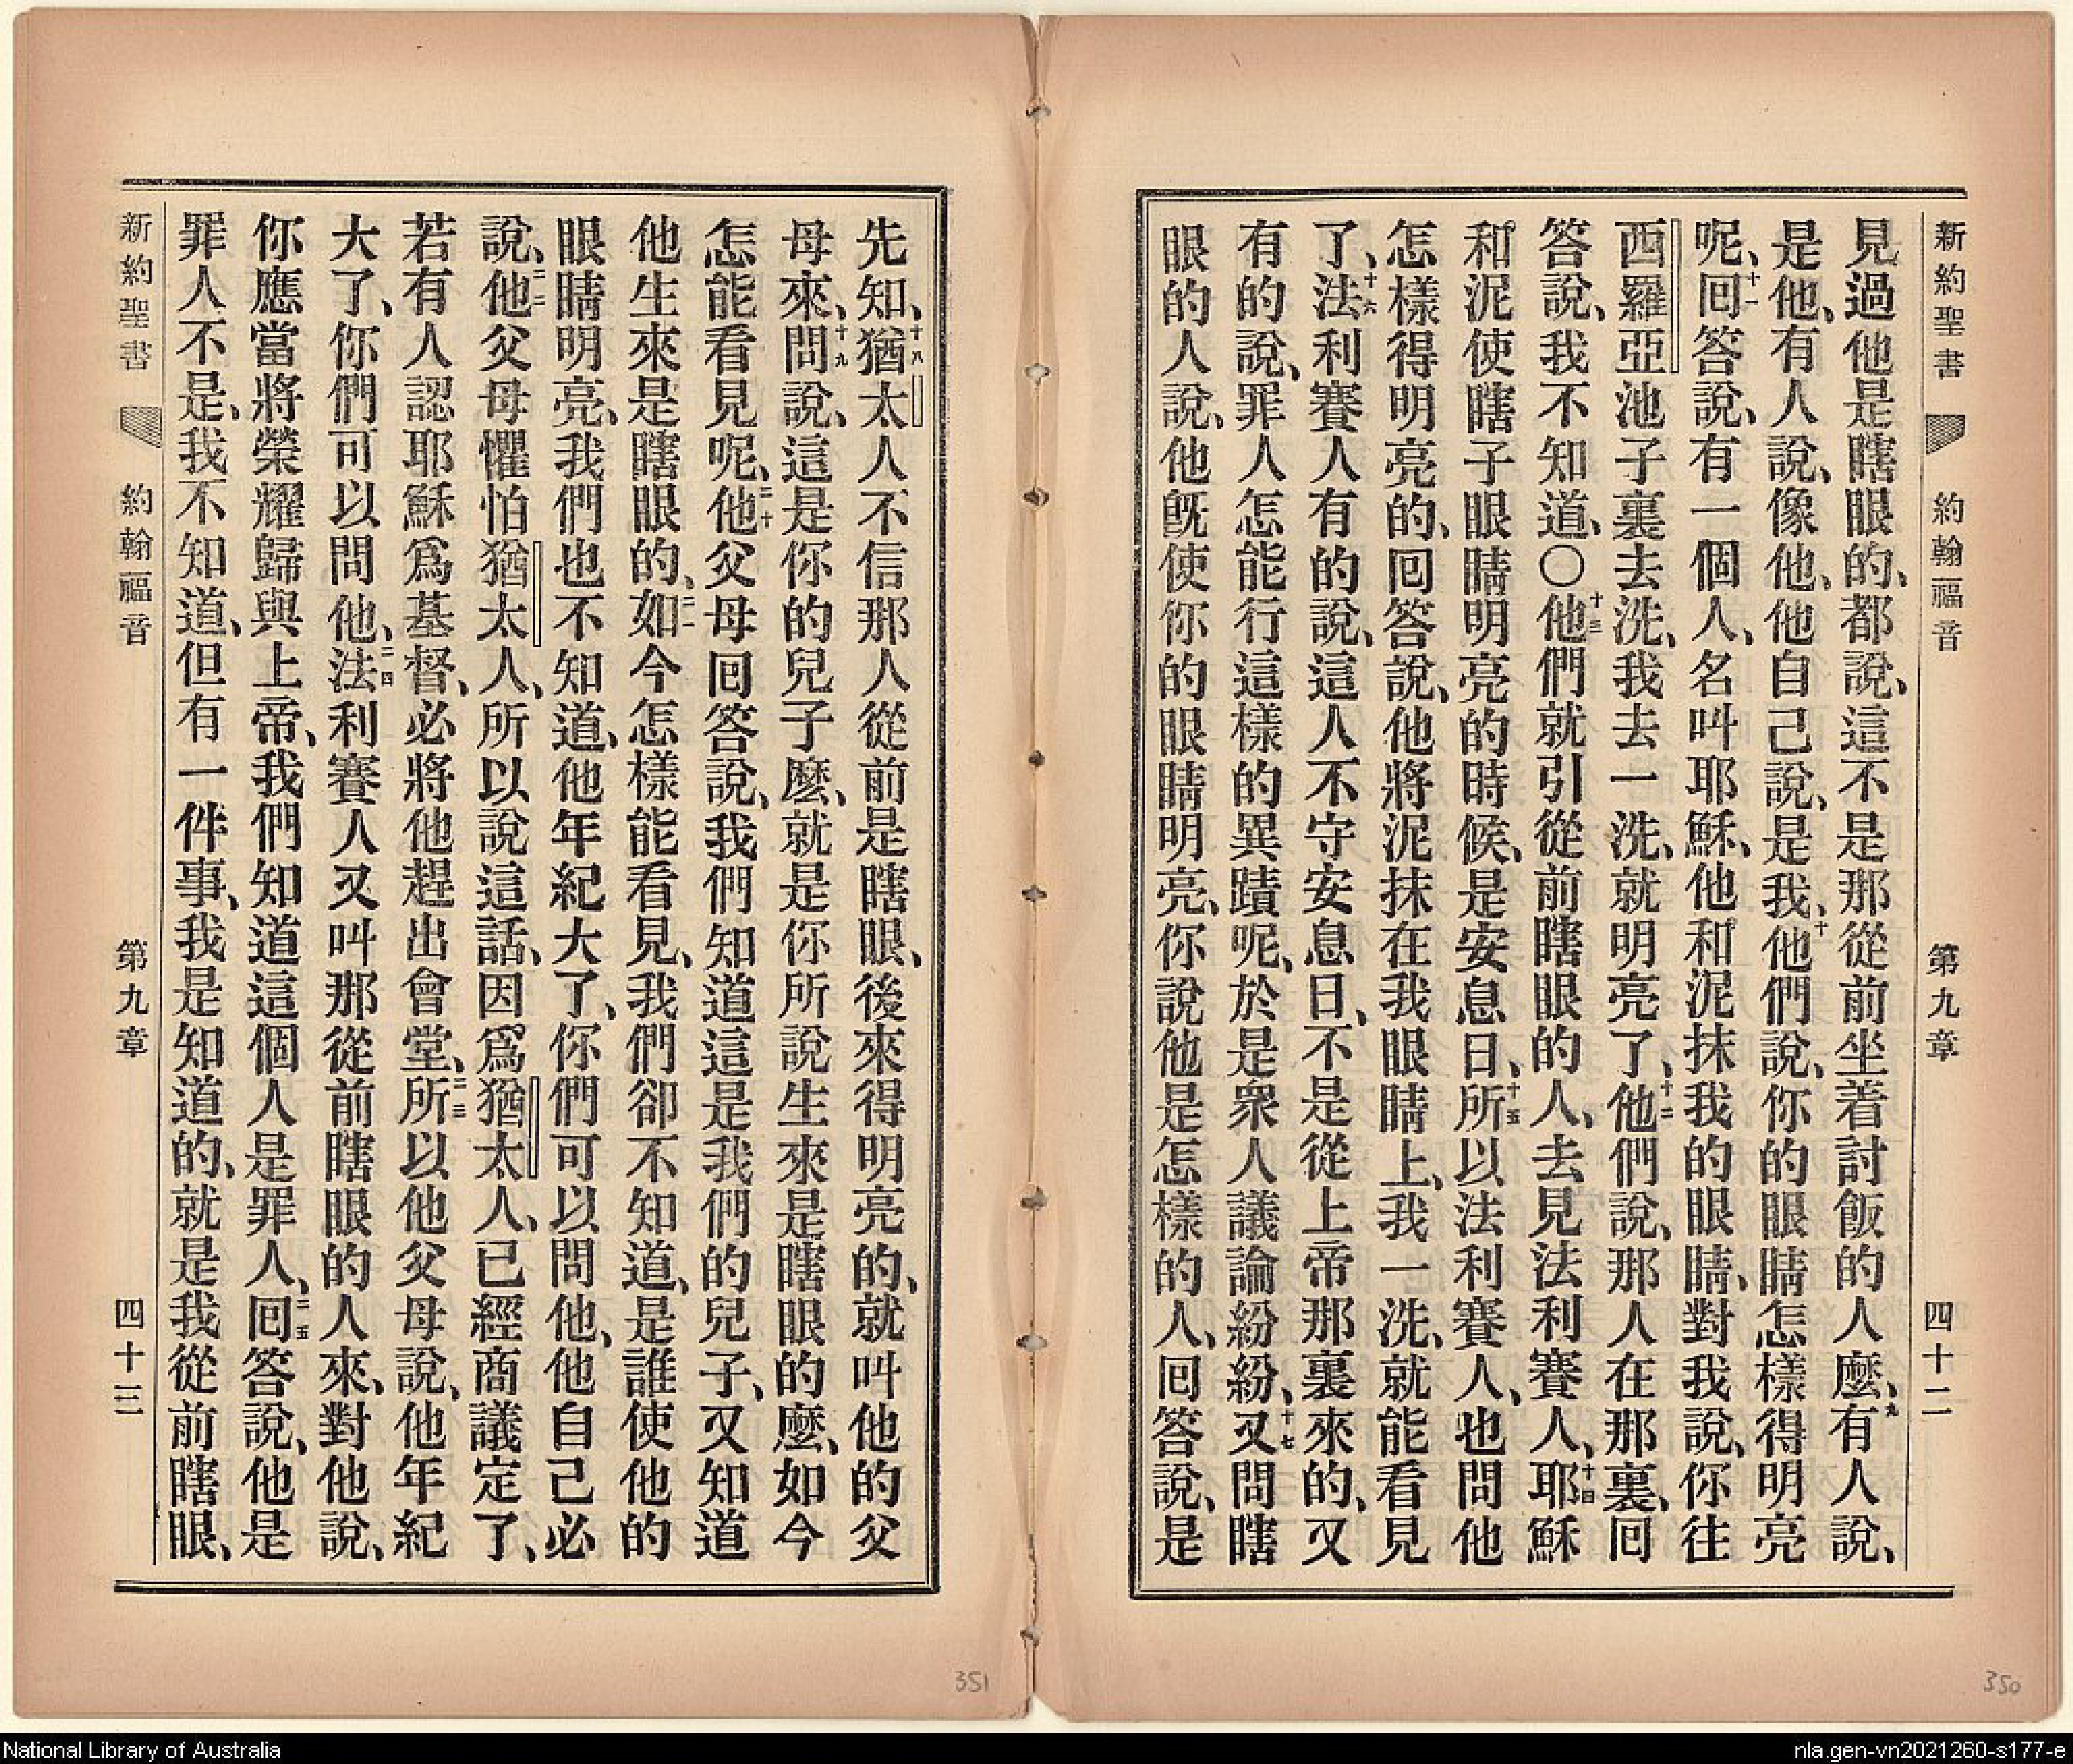 新約聖書 約翰福音 第九章 四十二
見過他是瞎眼的、都說、這不是那從前坐着討飯的人麼、九有人說、
是他、有人說、像他、他自己說、是我、十他們說、你的眼睛怎樣得明亮
呢、十一回答說、有一個人、名叫耶穌、他和泥抹我的眼睛、對我說、你往
西羅亞池子裏去洗、我去一洗、就明亮了、十二他們說、那人在那裏、回
答說、我不知道、〇十三他們就引從前瞎眼的人、去見法利賽人、十四耶穌
和泥使瞎子眼睛明亮的時候、是安息日、十五所以法利賽人、也問他
怎樣得明亮的、回答說、他將泥抹在我眼睛上、我一洗、就能看見
了、十六法利賽人有的說、這人不守安息日、不是從上帝那裏來的、又
有的說、罪人怎能行這樣的異蹟呢、於是衆人議論紛紛、十七又問瞎
眼的人說、他旣使你的眼睛明亮、你說他是怎樣的人、回答說、是
先知、十八猶太人不信那人從前是瞎眼、後來得明亮的、就叫他的父
母來、十九問說、這是你的兒子麼、就是你所說生來是瞎眼的麼、如今
怎能看見呢、二十他父母回答說、我們知道這是我們的兒子、又知道
他生來是瞎眼的、二一如今怎樣能看見、我們卻不知道、是誰使他的
眼睛明亮、我們也不知道、他年紀大了、你們可以問他、他自己必
說、二二他父母懼怕猶太人、所以說這話、因爲猶太人、已經商議定了、
若有人認耶穌爲基督、必將他趕出會堂、二三所以他父母說、他年紀
大了、你們可以問他、二四法利賽人又叫那從前瞎眼的人來、對他說、
你應當將榮耀歸與上帝、我們知道這個人是罪人、二五回答說、他是
罪人不是、我不知道、但有一件事、我是知道的、就是我從前瞎眼、
新約聖書 約翰福音 第九章 四十三
351
350
National Library of Australia
nla.gen-vn2021260-s177-e